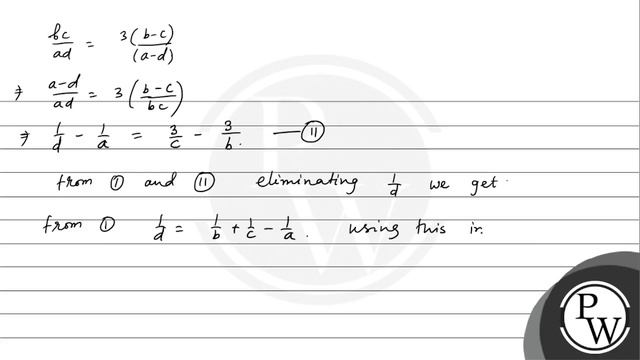 bc/ad = 3(b-c)/(a-d)
⇒ a-d/ad = 3(b-c/bc)
⇒ 1/d - 1/a = 3/c - 3/b. — II
from I and II eliminating 1/d we get.
from I 1/d = 1/b + 1/c - 1/a. using this in
P
W